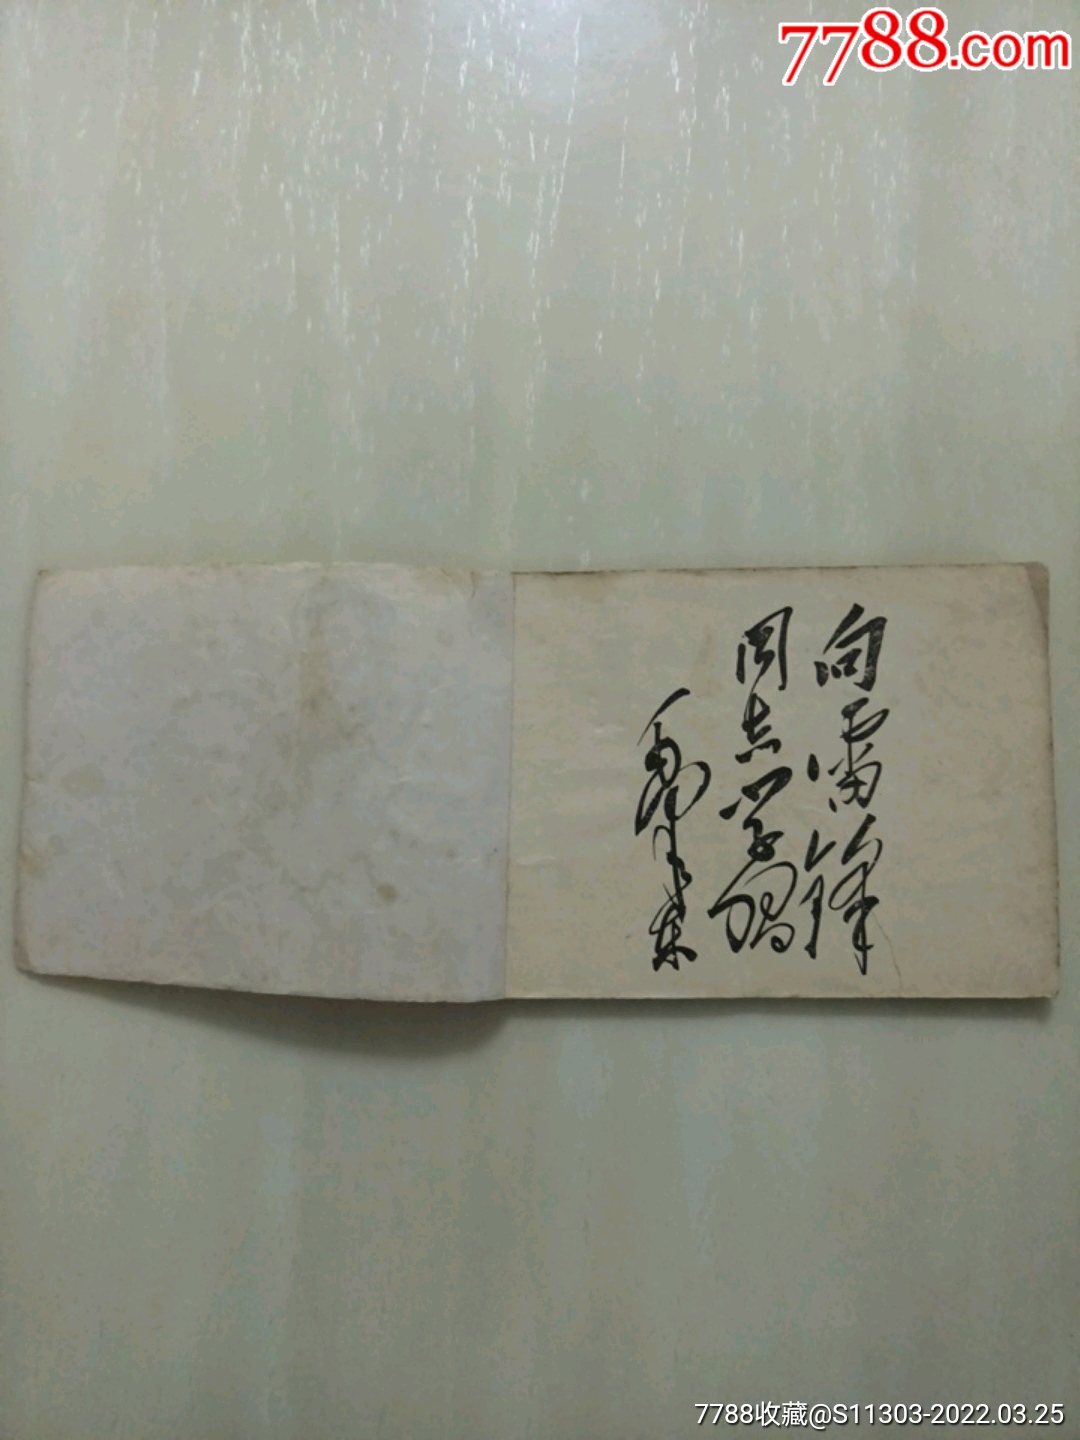 7788.com
向雷锋
同志学习
毛泽东
7788收藏@S11303-2022.03.25